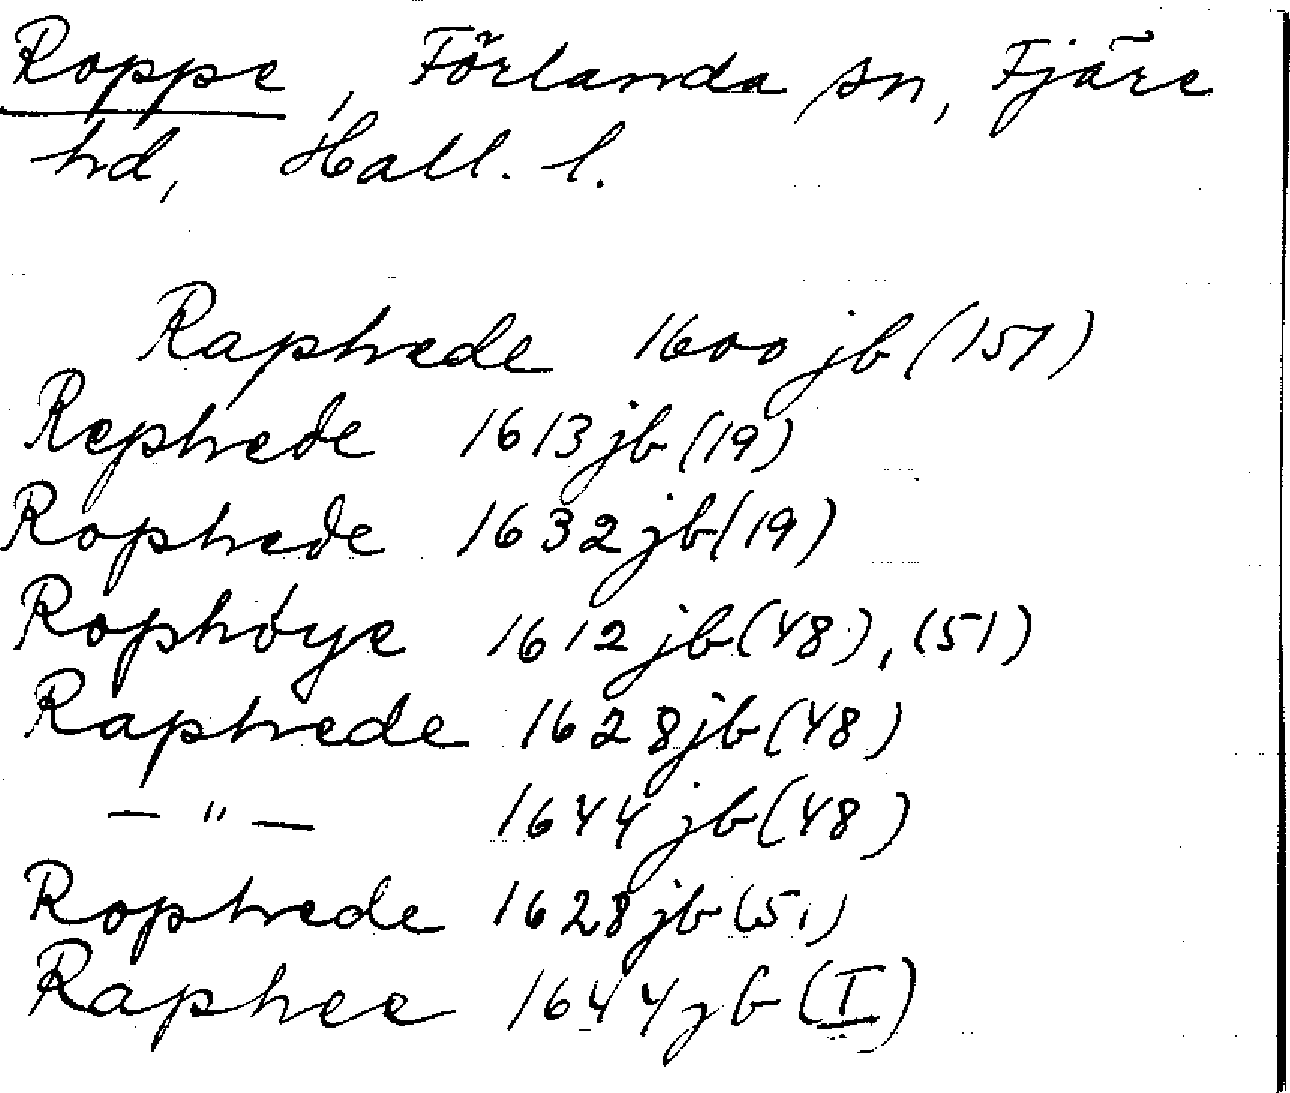 Roppe, Förlanda sn, Fjäre
hd, Hall. l.
Raphede 1600 jb (151)
Rephede 1613 jb (19)
Rophede 1632 jb (19)
Rophöye 1612 jb (48), (51)
Raphede 1628 jb (48)
— " — 1644 jb (48)
Rophede 1628 jb (51)
Raphee 1644 jb (I)